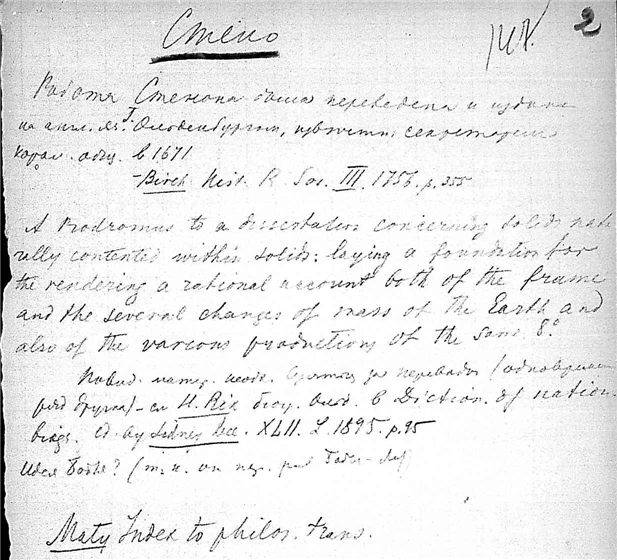 2
Стено
Работа Стенона была переведена и издана
на англ. яз. Ольденбургом, секретарем
корол. общ. в 1671
- Birch Hist. R. Soc. III. 1756. p. 355
A Prodromus to a dissertation concerning solids natu
rally contented within solids: laying a foundation for
the rendering a rational account both of the frame
and the several changes of mass of the Earth and
also of the various productions of the same 8°
(одновремен
H. Rix в Diction. of nation.
biogr. ed. by Sidney Lee. XLII. L. 1895. p. 95
Идеи Бойля? (
Maty Index to philos. trans.